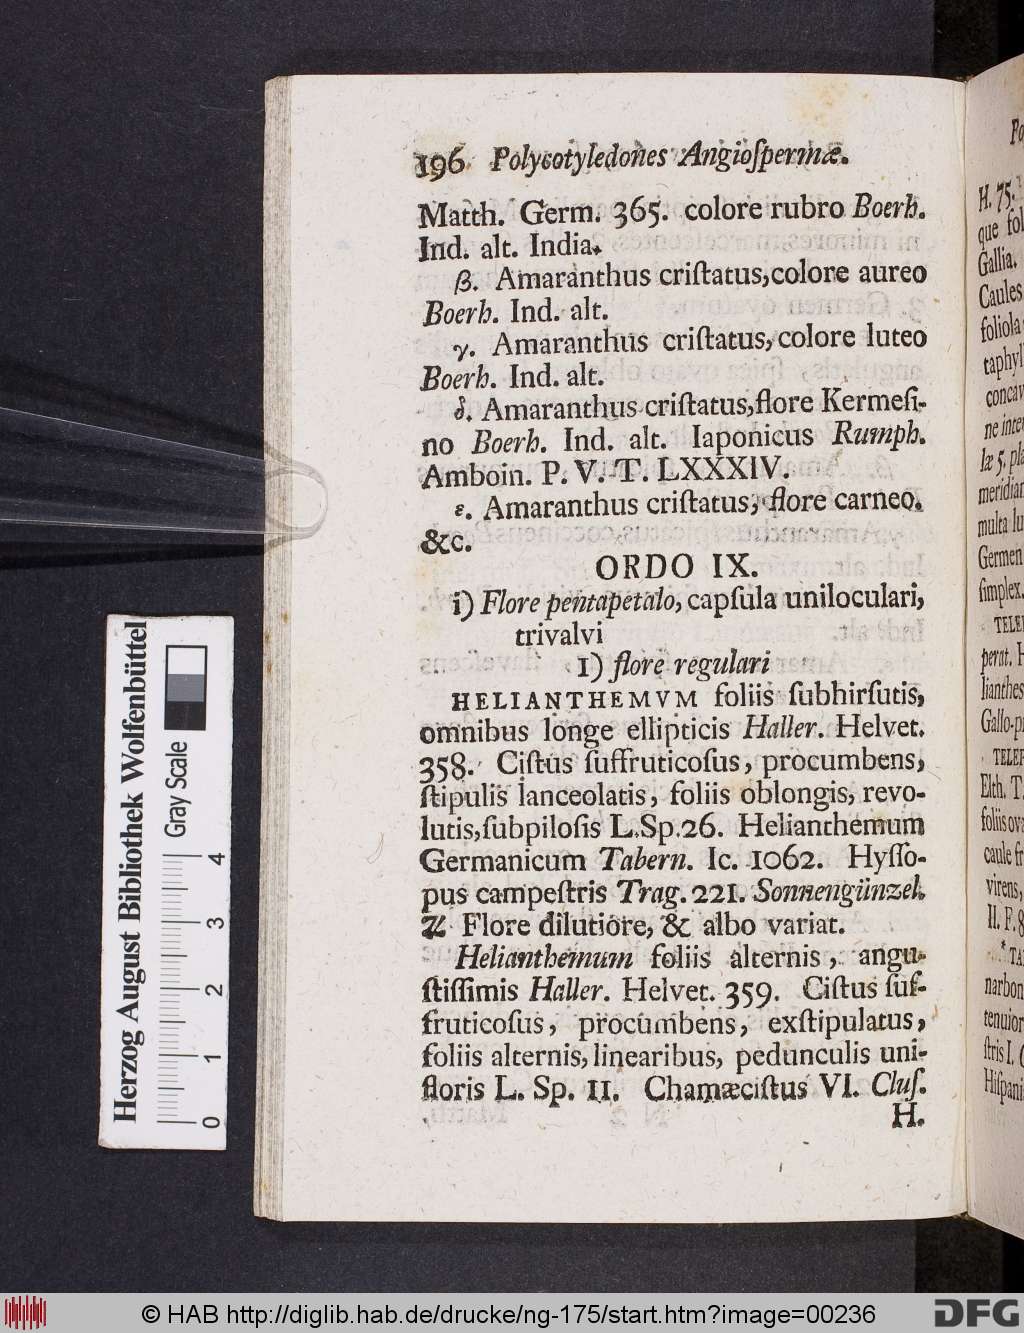 196 Polycotyledones Angioſpermæ.
Matth. Germ. 365. colore rubro Boerh.
Ind. alt. India.
β. Amaranthus criſtatus, colore aureo
Boerh. Ind. alt.
γ. Amaranthus criſtatus, colore luteo
Boerh. Ind. alt.
δ. Amaranthus criſtatus, flore Kermeſi-
no Boerh. Ind. alt. Iaponicus Rumph.
Amboin. P. V. T. LXXXIV.
ε. Amaranthus criſtatus, flore carneo.
&c.
ORDO IX.
i) Flore pentapetalo, capſula uniloculari,
trivalvi
1) flore regulari
HELIANTHEMVM foliis ſubhirſutis,
omnibus longe ellipticis Haller. Helvet.
358. Ciſtus ſuffruticoſus, procumbens,
ſtipulis lanceolatis, foliis oblongis, revo-
lutis, ſubpiloſis L. Sp. 26. Helianthemum
Germanicum Tabern. Ic. 1062. Hyſſo-
pus campeſtris Trag. 221. Sonnengünzel.
♃ Flore dilutiore, & albo variat.
Helianthemum foliis alternis, angu-
ſtiſſimis Haller. Helvet. 359. Ciſtus ſuf-
fruticoſus, procumbens, exſtipulatus,
foliis alternis, linearibus, pedunculis uni-
floris L. Sp. 11. Chamæciſtus VI. Cluſ.
H.
H. 75.
que fol
Gallia.
Caules
foliola
taphyl
concav
ne inte
læ 5. pla
meridian
multa lu
Germen
ſimplex.
TELEP
perat. H
lianthes
Gallo-pr
TELEP
Elth. T.
foliis ova
caule fr
virens,
H. F. 8
narbon
tenuior
ſtris I. C
Hiſpani
Herzog August Bibliothek Wolfenbüttel
Gray Scale
0 1 2 3 4
© HAB http://diglib.hab.de/drucke/ng-175/start.htm?image=00236
DFG